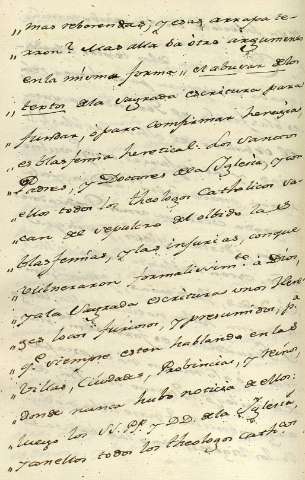 „mas reverendas; y esas arrapa te-
„rron? Mas alla ba otro argumento
„en la misma forma „el abusar de los
„textos de la Sagrada escritura para
„fundar, ó para confirmar heregias
„es blasfemia heretical: Los Santos
„Padres, y Doctores de la Yglesia, y con
„ellos todos los theologos Catholicos sa-
„can del sepulcro del olbido las
„blasfemias, y las injurias, con que
„vulneraron formalissimte. á Dios,
„y a la Sagrada escritura unos Here-
„ges locos furiosos, y presumidos, p.
„q.e siempre esten hablando en las
„Villas, Ciudades, Probincias, y Reinos
„donde nunca hubo noticia de ellos:
„luego los SS. PP. y DD. de la Yglesia,
„y con ellos todos los theologos Cathcos.